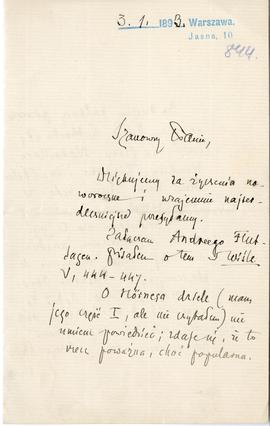 3. 1. 1893. Warszawa.
Jasna, 10
844.
Szanowny Panie,
Dziękujemy za życzenia no-
woroczne i wzajemnie najser-
deczniejsze przesyłamy.
Załączam Andreego Flut-
sagen. Pisałem o tem w Wiśle
V, 444-447.
O dziele (mam
jego część I, ale nie czytałem) nie
umiem powiedzieć; zdaje się, iż to
rzecz poważna, choć popularna.